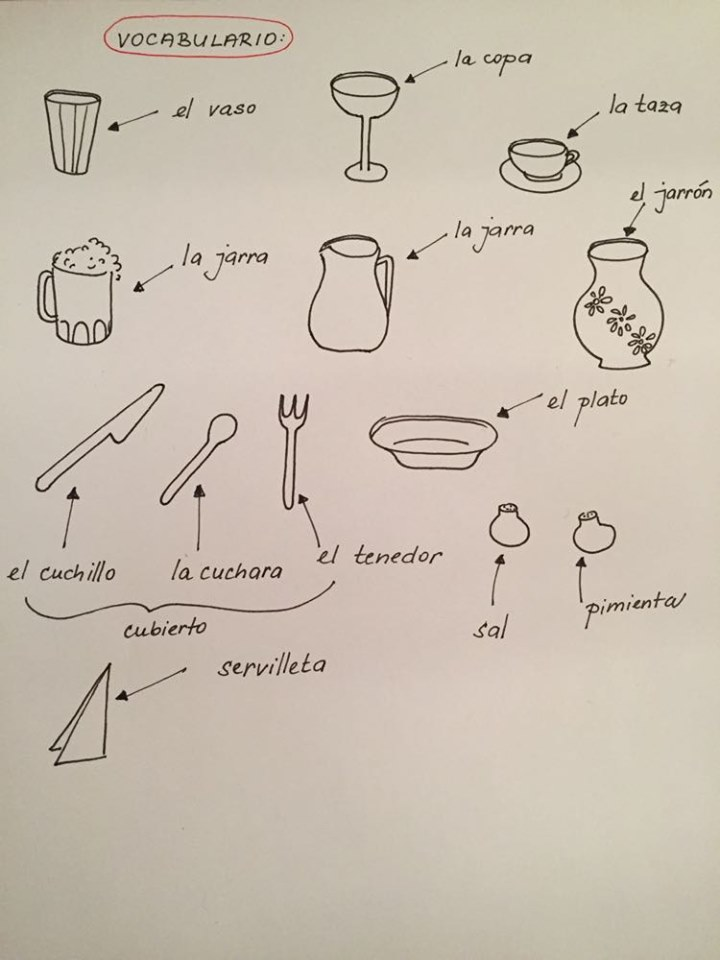 VOCABULARIO:
el vaso
la copa
la taza
la jarra
la jarra
el jarrón
el plato
el cuchillo
la cuchara
el tenedor
cubierto
sal
pimienta
servilleta